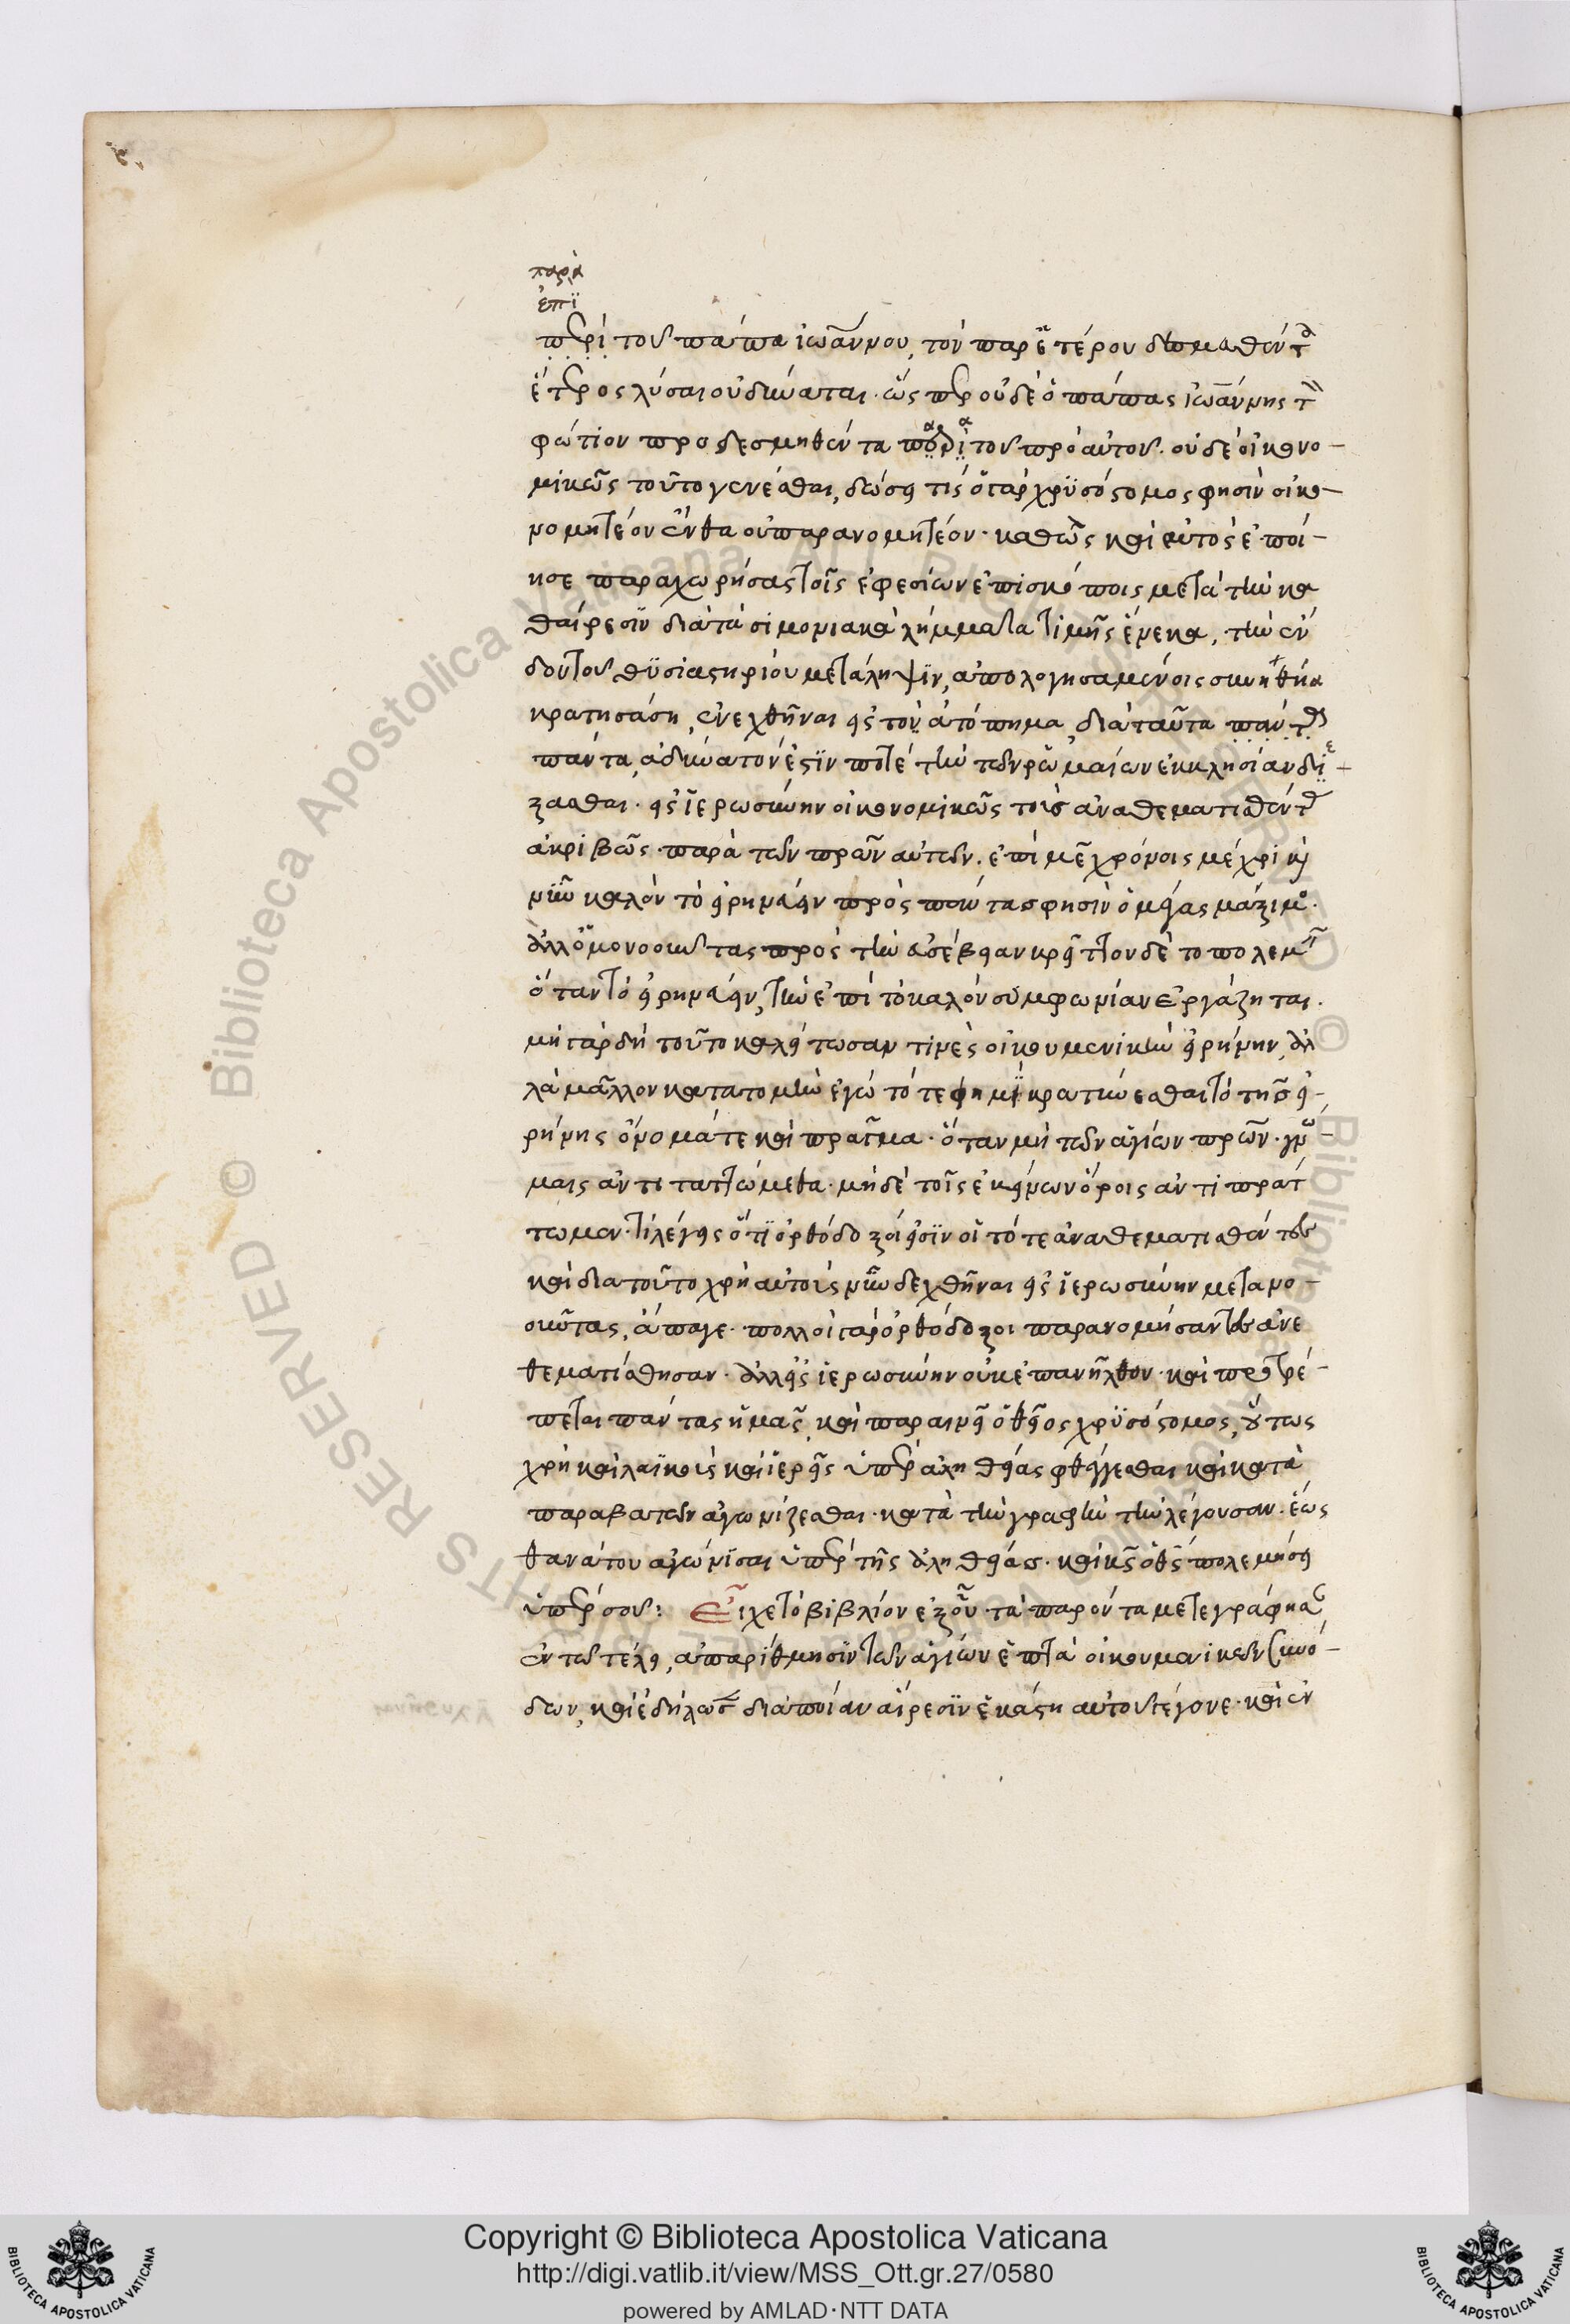 παρὰ
ἐπὶ
περὶ τοῦ πάπα ἰωάννου, τὸν παρ' ἑτέρου δεσμηθέντα
ἕτερος λῦσαι οὐ δύναται· ὥσπερ οὐδὲ ὁ πάπας ἰωάννης τὸν
φώτιον προδεσμηθέντα παρὰ τοῦ πρὸ αὐτοῦ. οὐδὲ οἰκονο-
μικῶς τοῦτο γενέσθαι, δώσει τίς ὅταρ χρϋσόστομος φησὶν οἰκο-
νομητέον ἔνθα οὐ παρανομητέον· καθὼς καὶ αὐτὸς ἐποί-
ησε παραχωρήσας τοῖς ἐφεσίων ἐπισκόποις μετὰ τὴν κα
θαίρεσϊν διὰ τὰ σιμονιακὰ λήμματα τιμῆς ἕνεκα, τὴν ἔν
δον τοῦ θϋσιαστηρίου μετάληψϊν, ἀπολογησαμένοις συνηθεία
κρατησάση, ἐνεχθῆναι εἰς τὸν ἀτόπημα, διὰ ταῦτα πάντες
πάντα, ἀδύνατόν ἐστϊν ποτὲ τὴν τῶν ῥωμαίων ἐκκλησίαν δέ-
ξασθαι· εἰς ἱερωσύνην οἰκονομικῶς τοὺς ἀναθεματισθέντας
ἀκριβῶς παρὰ τῶν πρων αὐτῶν. ἐπὶ μὲν χρόνοις μέχρι καὶ
νῦν καλὸν τὸ εἰρηνεύειν πρὸς πάντας φησὶν ὁ μέγας μάξιμος.
ἀλλ' ὁμονοοῦντας πρὸς τὴν εὐσέβειαν κρεῖττον δὲ τὸ πολεμεῖν
ὅταν τὸ εἰρηνεύειν, τὴν ἐπὶ τὸ κακὸν συμφωνίαν ἐργάζηται.
μὴ γὰρ δὴ τοῦτο καλείτωσαν τινὲς οἰκουμενικὴν εἰρήνην, ἀλ
λὰ μᾶλλον κατατομὴν ἐγὼ τότε φημὶ κρατύνεσθαι τὸ τῆς εἰ-
ρήνης ὄνομά τε καὶ πρᾶγμα· ὅταν μὴ τῶν ἁγίων πρων· γνώ-
μαις ἀντιταττώμεθα· μηδὲ τοῖς ἐκείνων ὅροις ἀντιπράτ
τωμεν. τί λέγεις ὅτϊ ὀρθόδοξοί εἰσϊν οἱ τότε ἀναθεματισθέντες
καὶ διὰ τοῦτο χρὴ αὐτοὺς νῦν δεχθῆναι εἰς ἱερωσύνην μετανο-
οῦντας, ἄπαγε· πολλοὶ γὰρ ὀρθόδοξοι παρανομήσαντες ἀνε
θεματίσθησαν· ἀλλ' εἰς ἱερωσύνην οὐκ ἐπανῆλθον· καὶ προτρέ-
πεται πάντας ἡμᾶς, καὶ παραινεῖ ὁ θεῖος χρϋσόστομος, οὕτως
χρὴ καὶ λαϊκοὺς καὶ ἱερεῖς ὑπὲρ ἀληθείας φθέγγεσθαι καὶ κατὰ
παραβατῶν ἀγωνίζεσθαι· κατὰ τὴν γραφὴν τὴν λέγουσαν. ἕως
θανάτου ἀγώνισαι ὑπὲρ τῆς ἀληθείας. καὶ κς ὁ θς πολεμήσει
ὑπὲρ σοῦ: Εἶχε τὸ βιβλίον ἐξ οὗ τὰ παρόντα μετεγράφησαν
ἐν τῶ τέλει, ἀπαρίθμησϊν τῶν ἁγίων ἑπτὰ οἰκουμενικῶν συνό-
δων, καὶ ἐδήλωσε διὰ ποίαν αἵρεσϊν ἑκάστη αὐτοῦ γέγονε· καὶ ἐν